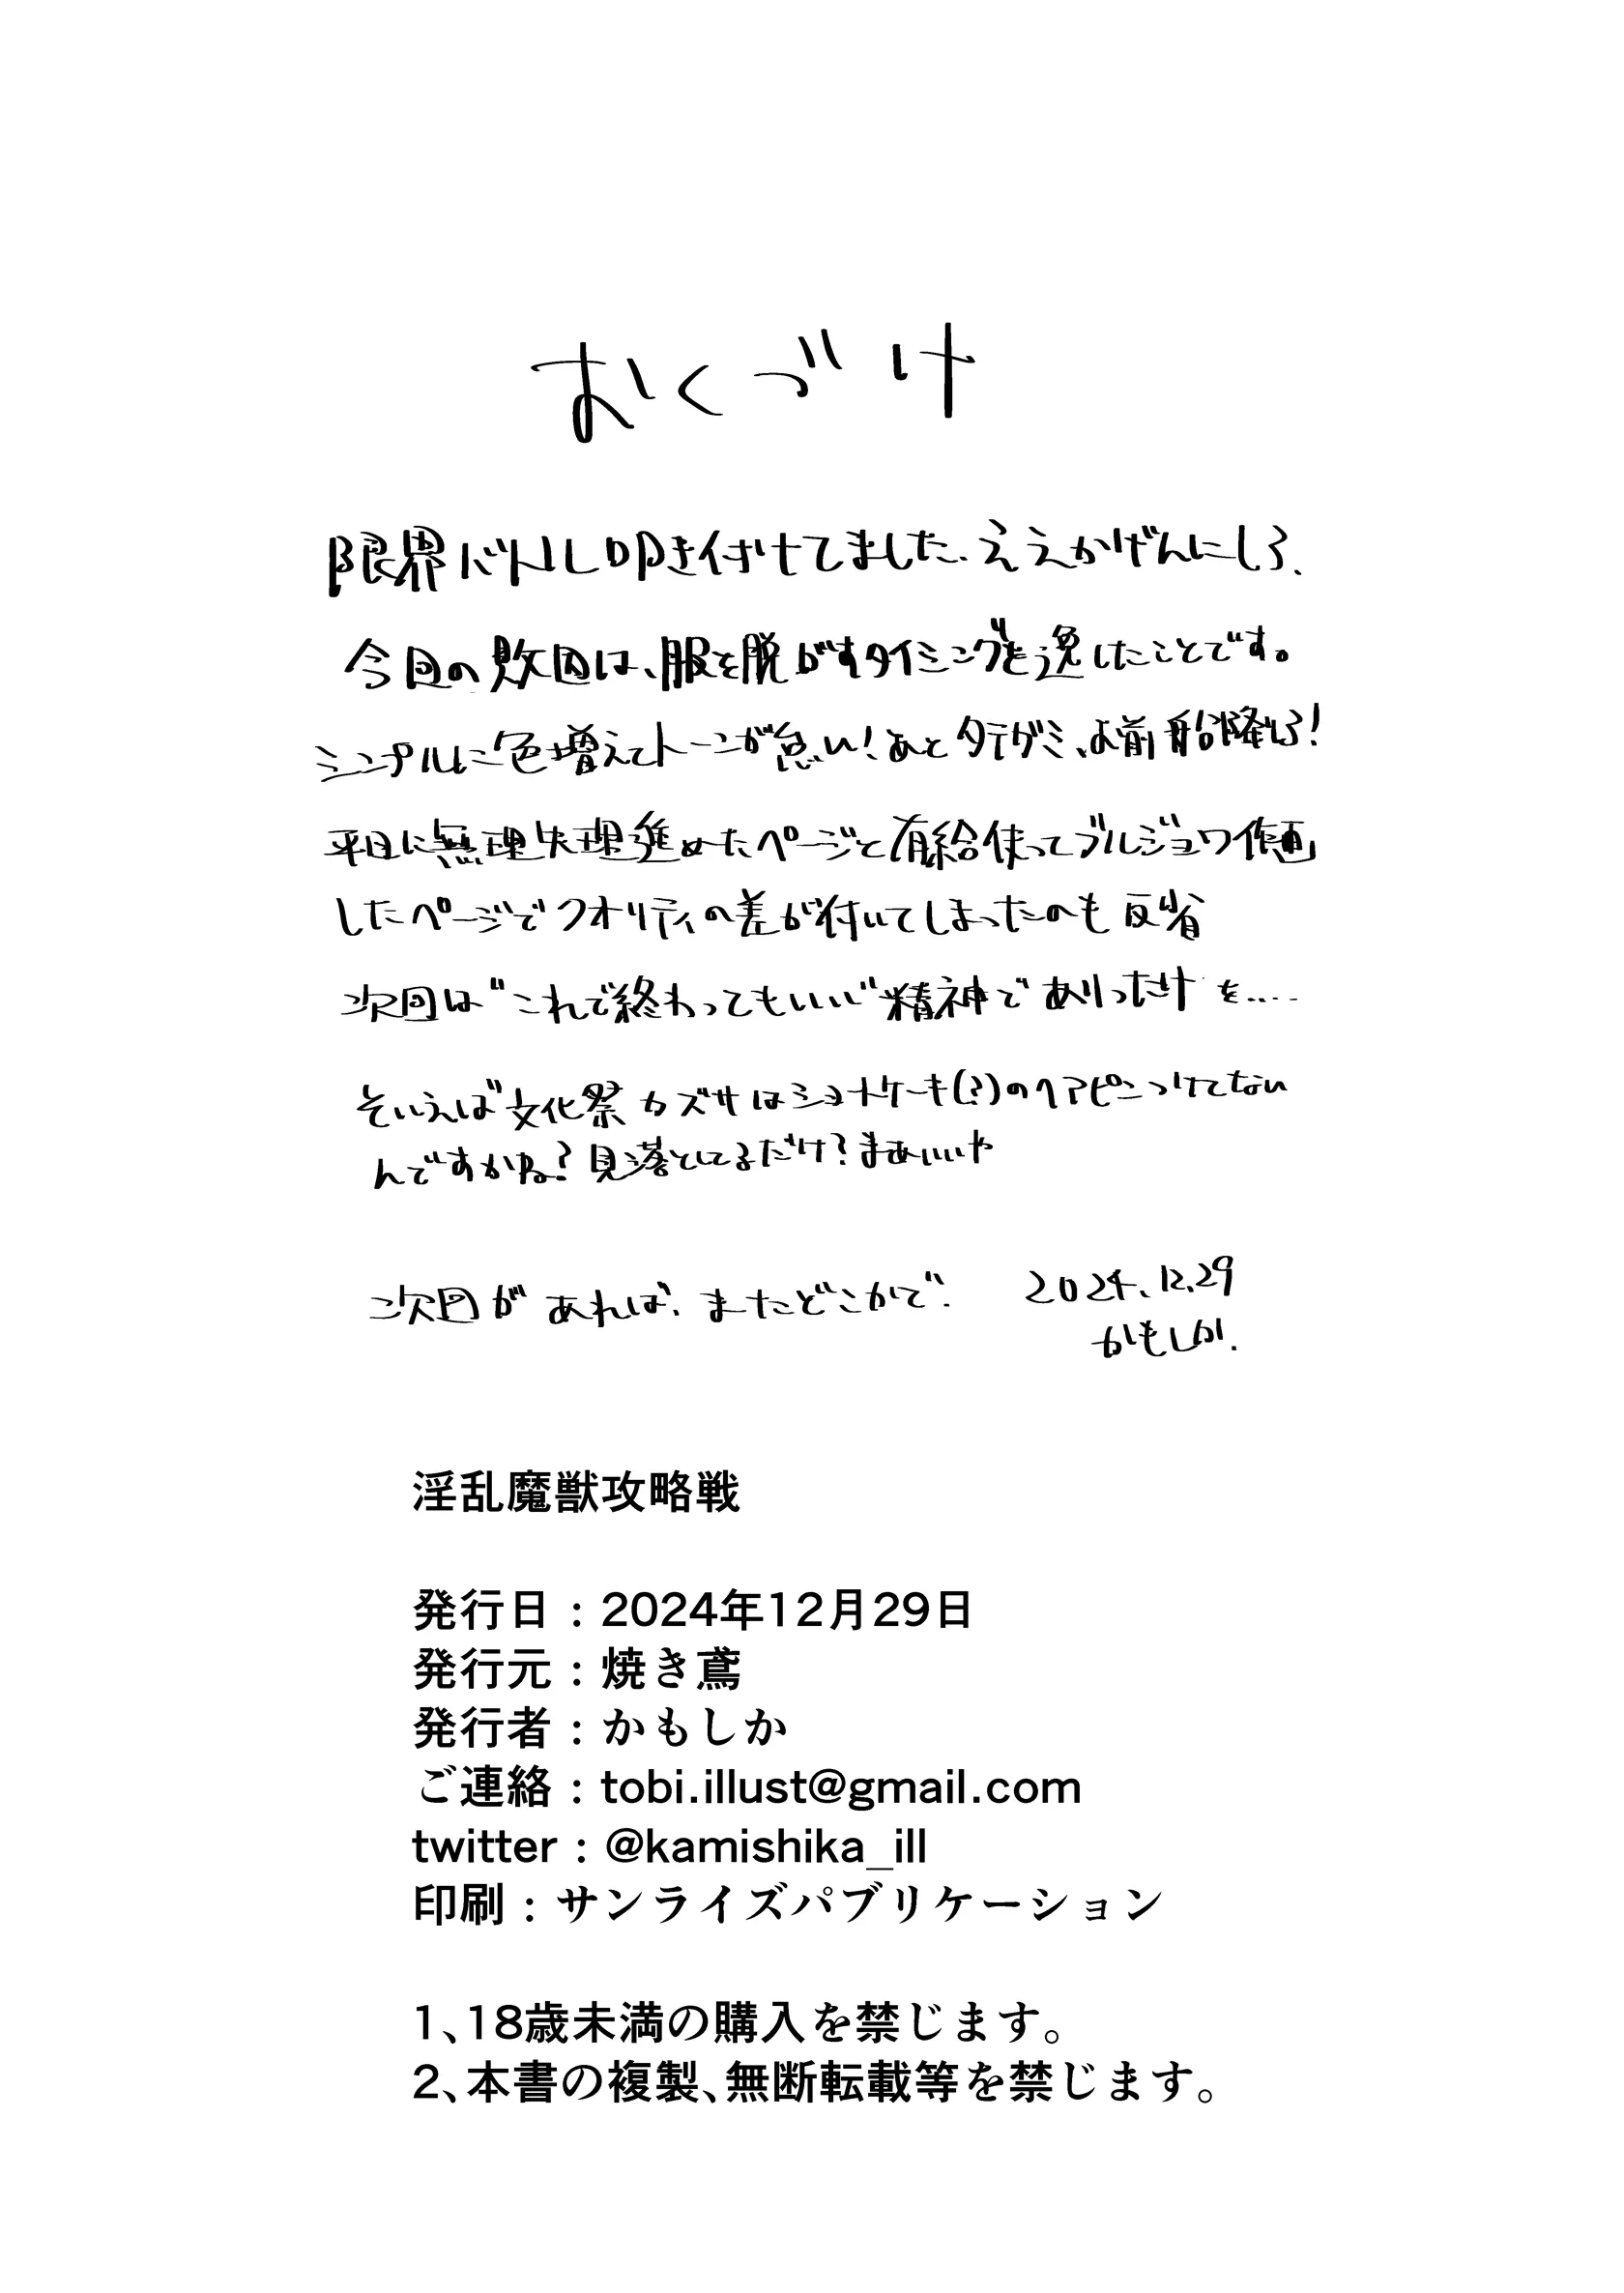 おくづけ
限界バトル叩き付けてました.ええかげんにしろ.
今回の敗因は、服を脱がすタイミングを逸したことです。
シンプルに色増えてトーンが怠い!あとタテグミ、お前船降りろ!
平日に無理矢理進めたページと有給使ってブルジョワ作画
したページでクオリティの差が付いてしまったのも反省
次回は"これで終わってもいい"精神でありったけを……
そういえば文化祭カズサはショートケーキ(?)のヘアピンつけてない
んですかね?見落としてるだけ?まあいいや
次回があれば、またどこかで.
2024.12.29
かもしか.
淫乱魔獣攻略戦
発行日:2024年12月29日
発行元:焼き鳶
発行者:かもしか
ご連絡:tobi.illust@gmail.com
twitter:@kamishika_ill
印刷:サンライズパブリケーション
1、18歳未満の購入を禁じます。
2、本書の複製、無断転載等を禁じます。